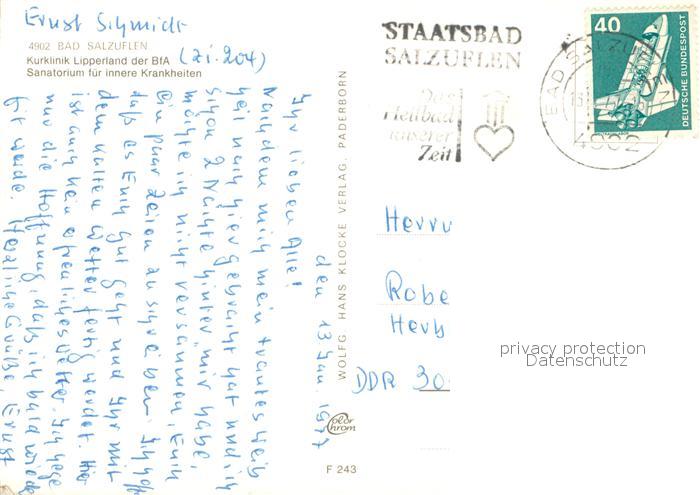 Ernst Schmidt
4902 BAD SALZUFLEN
(Zi. 204)
Kurklinik Lipperland der BfA
Sanatorium für innere Krankheiten
den 13 Jan. 1977
Ihr lieben Alle!
Nachdem mich mein trautes Weib
heil nach hier gebracht hat und ich
schon 2 Nächte hinter mir habe,
möchte ich nicht versäumen, Euch
ein paar Zeilen zu schreiben. Ich hoffe
daß es Euch gut geht und Ihr mit
dem kalten Wetter fertig werdet. Hier
ist auch kein erfreuliches Wetter. Ich hege
nur die Hoffnung, daß ich bald wieder
fit werde. Herzliche Grüße, Ernst
WOLFG HANS KLOCKE VERLAG, PADERBORN
Color
Chrom
F 243
STAATSBAD
SALZUFLEN
Das
Heilbad
unserer
Zeit
BAD SALZU
4902
40
DEUTSCHE BUNDESPOST
Herrn
Robe
Herb
DDR 30
privacy protection
Datenschutz